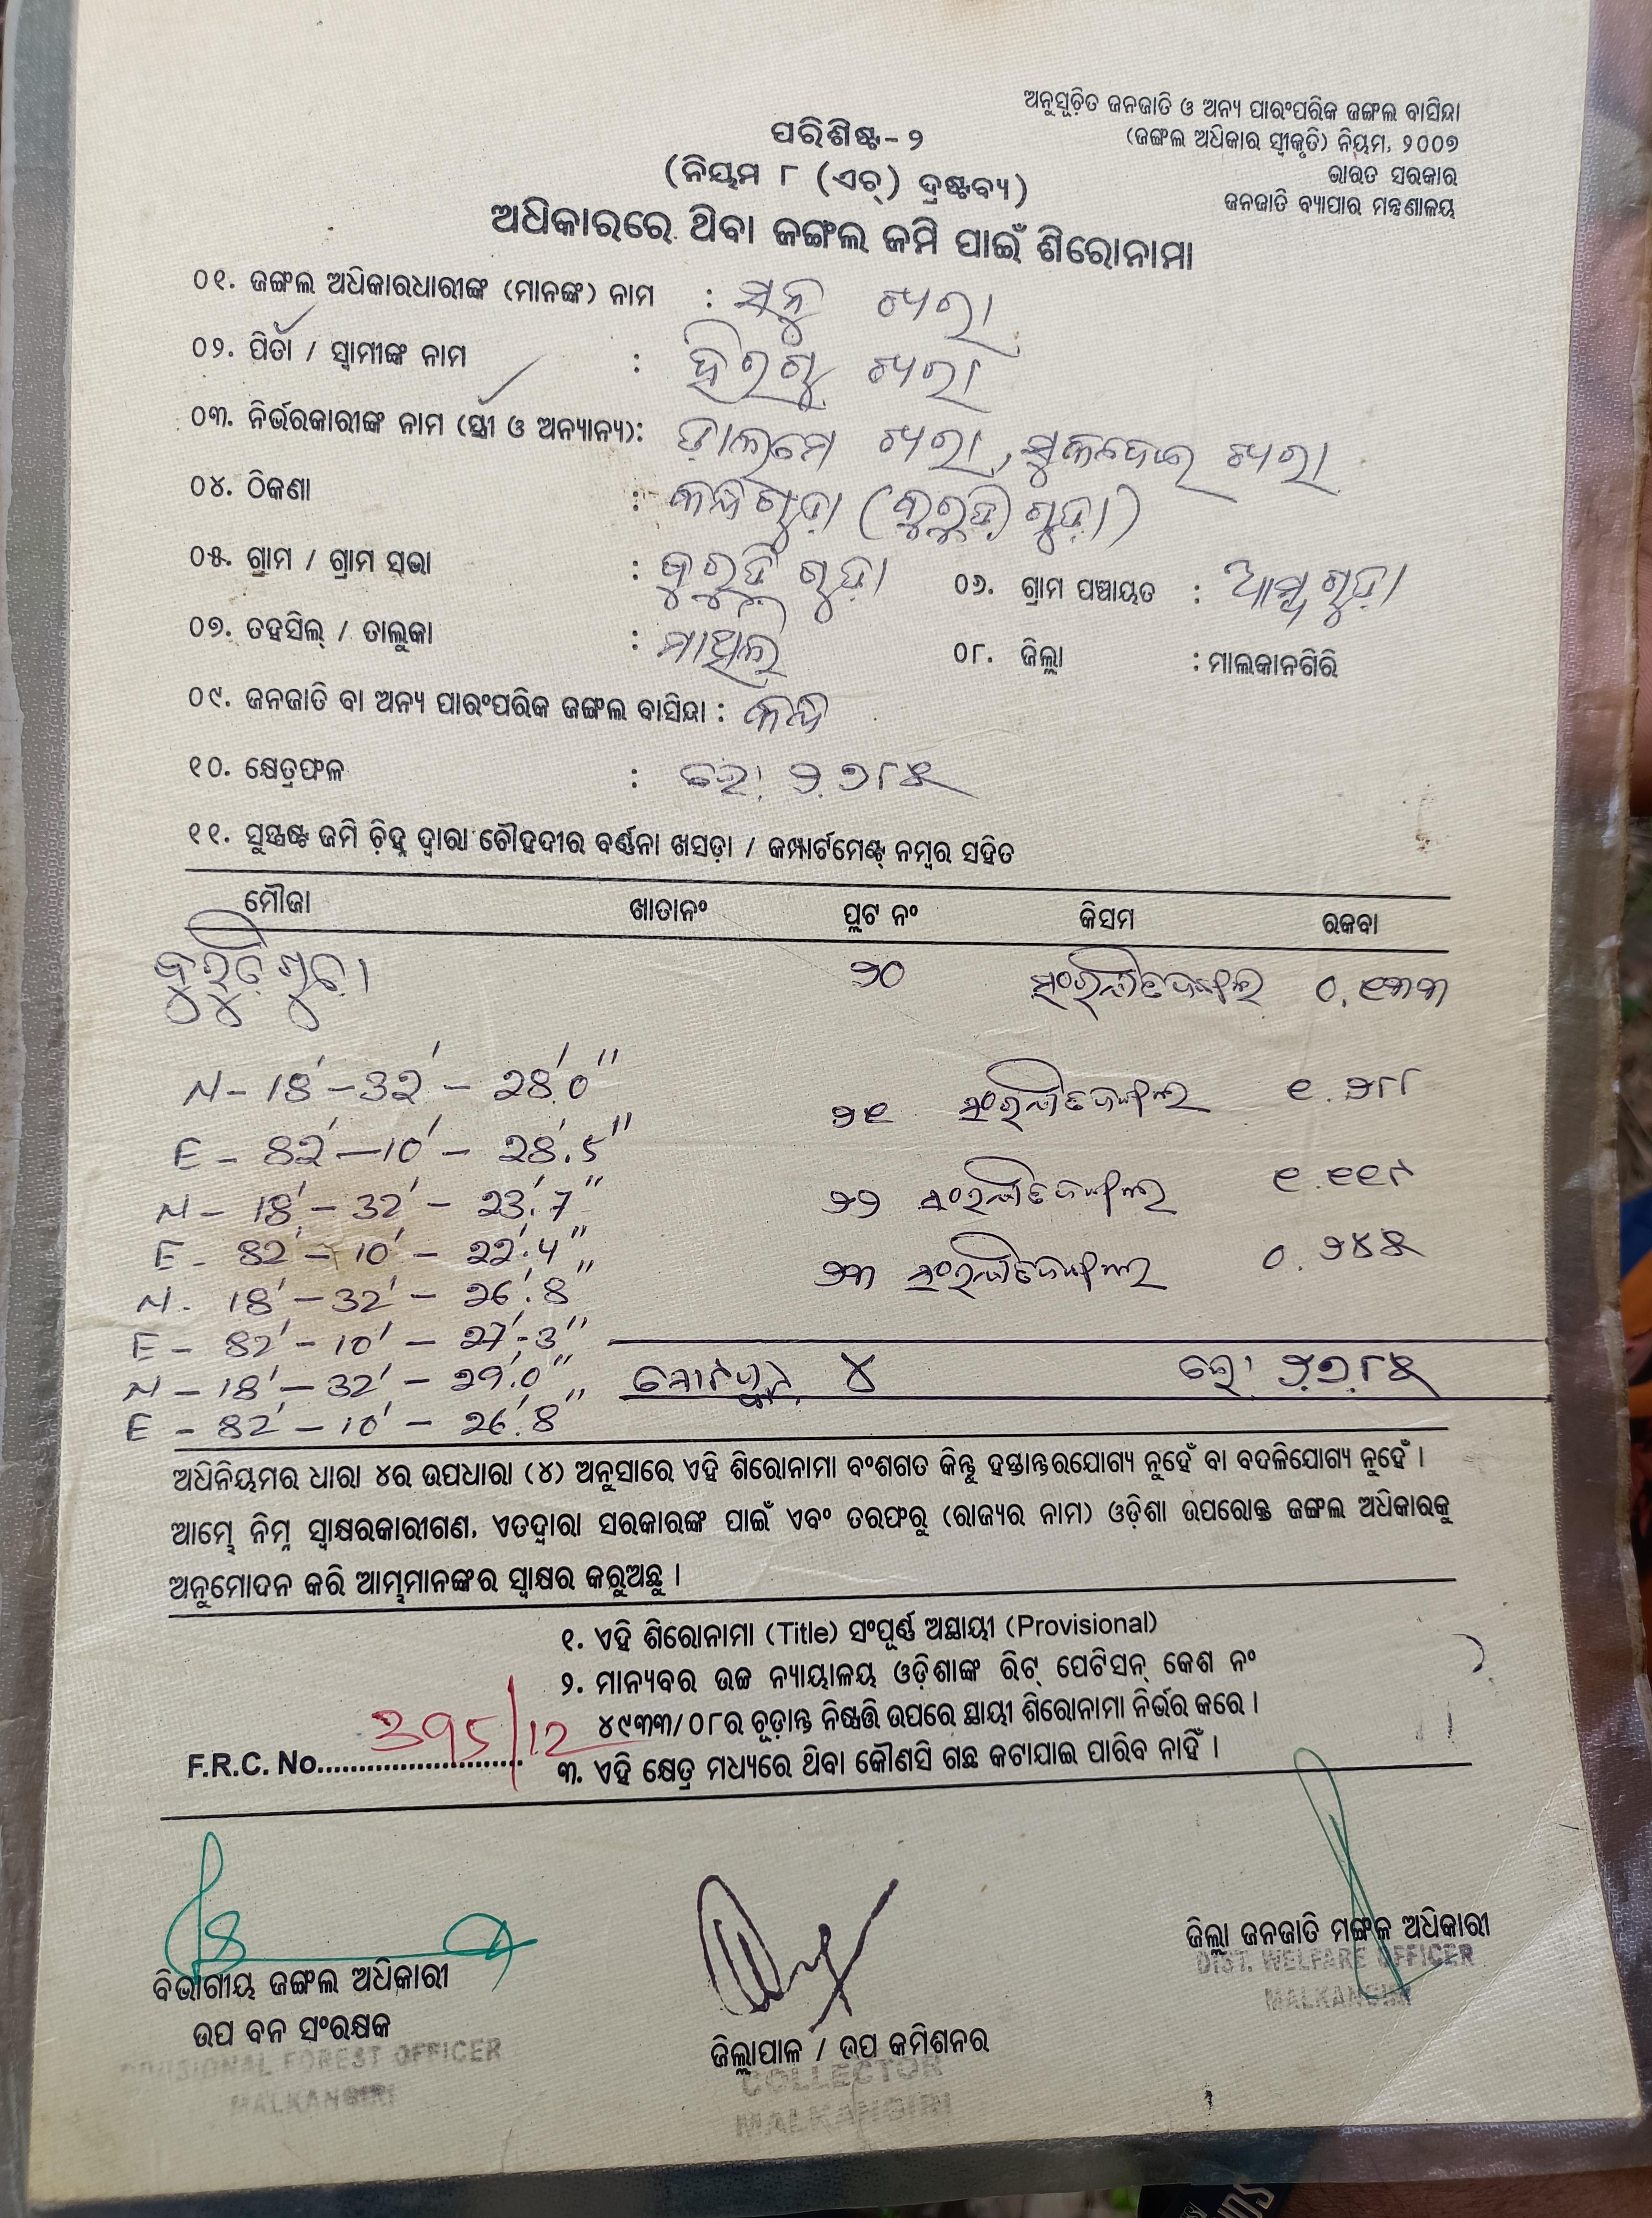 ଅନୁସୂଚିତ ଜନଜାତି ଓ ଅନ୍ୟ ପାରଂପରିକ ଜଙ୍ଗଲ ବାସିନ୍ଦା
(ଜଙ୍ଗଲ ଅଧିକାର ସ୍ୱୀକୃତି) ନିୟମ, ୨୦୦୭
ଭାରତ ସରକାର
ଜନଜାତି ବ୍ୟାପାର ମନ୍ତ୍ରଣାଳୟ
ପରିଶିଷ୍ଟ-୨
(ନିୟମ ୮ (ଏଚ୍) ଦ୍ରଷ୍ଟବ୍ୟ)
ଅଧିକାରରେ ଥିବା ଜଙ୍ଗଲ ଜମି ପାଇଁ ଶିରୋନାମା
୦୧. ଜଙ୍ଗଲ ଅଧିକାରଧାରୀଙ୍କ (ମାନଙ୍କ) ନାମ : ସନୁ ଖରା
୦୨. ପିତା / ସ୍ୱାମୀଙ୍କ ନାମ : ଖରା
୦୩. ନିର୍ଭରକାରୀଙ୍କ ନାମ (ସ୍ତ୍ରୀ ଓ ଅନ୍ୟାନ୍ୟ): ଡାଲମେ ଖରା, ସୁକଦେଇ ଖରା
୦୪. ଠିକଣା : କନ୍ଧଗୁଡ଼ା (କୁରୁଡ଼ି ଗୁଡ଼ା)
୦୫. ଗ୍ରାମ / ଗ୍ରାମ ସଭା : ଗୁଡ଼ା ୦୬. ଗ୍ରାମ ପଞ୍ଚାୟତ : ଆମ୍ବଗୁଡ଼ା
୦୭. ତହସିଲ୍ / ତାଲୁକା : ମାଥିଲି ୦୮. ଜିଲ୍ଲା : ମାଲକାନଗିରି
୦୯. ଜନଜାତି ବା ଅନ୍ୟ ପାରଂପରିକ ଜଙ୍ଗଲ ବାସିନ୍ଦା : କନ୍ଧ
୧୦. କ୍ଷେତ୍ରଫଳ : ହେ: ୨.୭୮୫
୧୧. ସୁସ୍ପଷ୍ଟ ଜମି ଚିହ୍ନ ଦ୍ୱାରା ଚୌହଦୀର ବର୍ଣ୍ଣନା ଖସଡ଼ା / କମ୍ପାର୍ଟମେଣ୍ଟ୍ ନମ୍ବର ସହିତ
ମୌଜା ଖାତାନଂ ପ୍ଲଟ ନଂ କିସମ ରକବା
୨୦ ସଂରକ୍ଷିତ ଜଙ୍ଗଲ ୦.୧୩୩
N - 18' - 32' - 28'.0"
E - 82' - 10' - 28'.5" ୨୧ ସଂରକ୍ଷିତ ଜଙ୍ଗଲ ୧.୨୮୮
N - 18' - 32' - 23'.7" ୨୨ ସଂରକ୍ଷିତ ଜଙ୍ଗଲ ୧.୧୧୯
E - 82' - 10' - 22'.4"
N - 18' - 32' - 26'.8" ୨୩ ସଂରକ୍ଷିତ ଜଙ୍ଗଲ ୦.୨୪୫
E - 82' - 10' - 27'.3"
N - 18' - 32' - 29'.0" ୪ ହେ: ୨.୭୮୫
E - 82' - 10' - 26'.8"
ଅଧିନିୟମର ଧାରା ୪ର ଉପଧାରା (୪) ଅନୁସାରେ ଏହି ଶିରୋନାମା ବଂଶଗତ କିନ୍ତୁ ହସ୍ତାନ୍ତରଯୋଗ୍ୟ ନୁହେଁ ବା ବଦଳିଯୋଗ୍ୟ ନୁହେଁ ।
ଆମ୍ଭେ ନିମ୍ନ ସ୍ୱାକ୍ଷରକାରୀଗଣ, ଏତଦ୍ୱାରା ସରକାରଙ୍କ ପାଇଁ ଏବଂ ତରଫରୁ (ରାଜ୍ୟର ନାମ) ଓଡ଼ିଶା ଉପରୋକ୍ତ ଜଙ୍ଗଲ ଅଧିକାରକୁ
ଅନୁମୋଦନ କରି ଆମ୍ଭମାନଙ୍କର ସ୍ୱାକ୍ଷର କରୁଅଛୁ ।
୧. ଏହି ଶିରୋନାମା (Title) ସଂପୂର୍ଣ୍ଣ ଅସ୍ଥାୟୀ (Provisional)
୨. ମାନ୍ୟବର ଉଚ୍ଚ ନ୍ୟାୟାଳୟ ଓଡ଼ିଶାଙ୍କ ରିଟ୍ ପେଟିସନ୍ କେଶ ନଂ
୪୯୩୩/୦୮ର ଚୂଡ଼ାନ୍ତ ନିଷ୍ପତ୍ତି ଉପରେ ସ୍ଥାୟୀ ଶିରୋନାମା ନିର୍ଭର କରେ ।
F.R.C. No. 395/12 ୩. ଏହି କ୍ଷେତ୍ର ମଧ୍ୟରେ ଥିବା କୌଣସି ଗଛ କଟାଯାଇ ପାରିବ ନାହିଁ ।
ଜିଲ୍ଲା ଜନଜାତି ମଙ୍ଗଳ ଅଧିକାରୀ
DIST. WELFARE OFFICER
MALKANGIRI
ବିଭାଗୀୟ ଜଙ୍ଗଲ ଅଧିକାରୀ
ଉପ ବନ ସଂରକ୍ଷକ
DIVISIONAL FOREST OFFICER
MALKANGIRI
ଜିଲ୍ଲାପାଳ / ଉପ କମିଶନର
COLLECTOR
MALKANGIRI